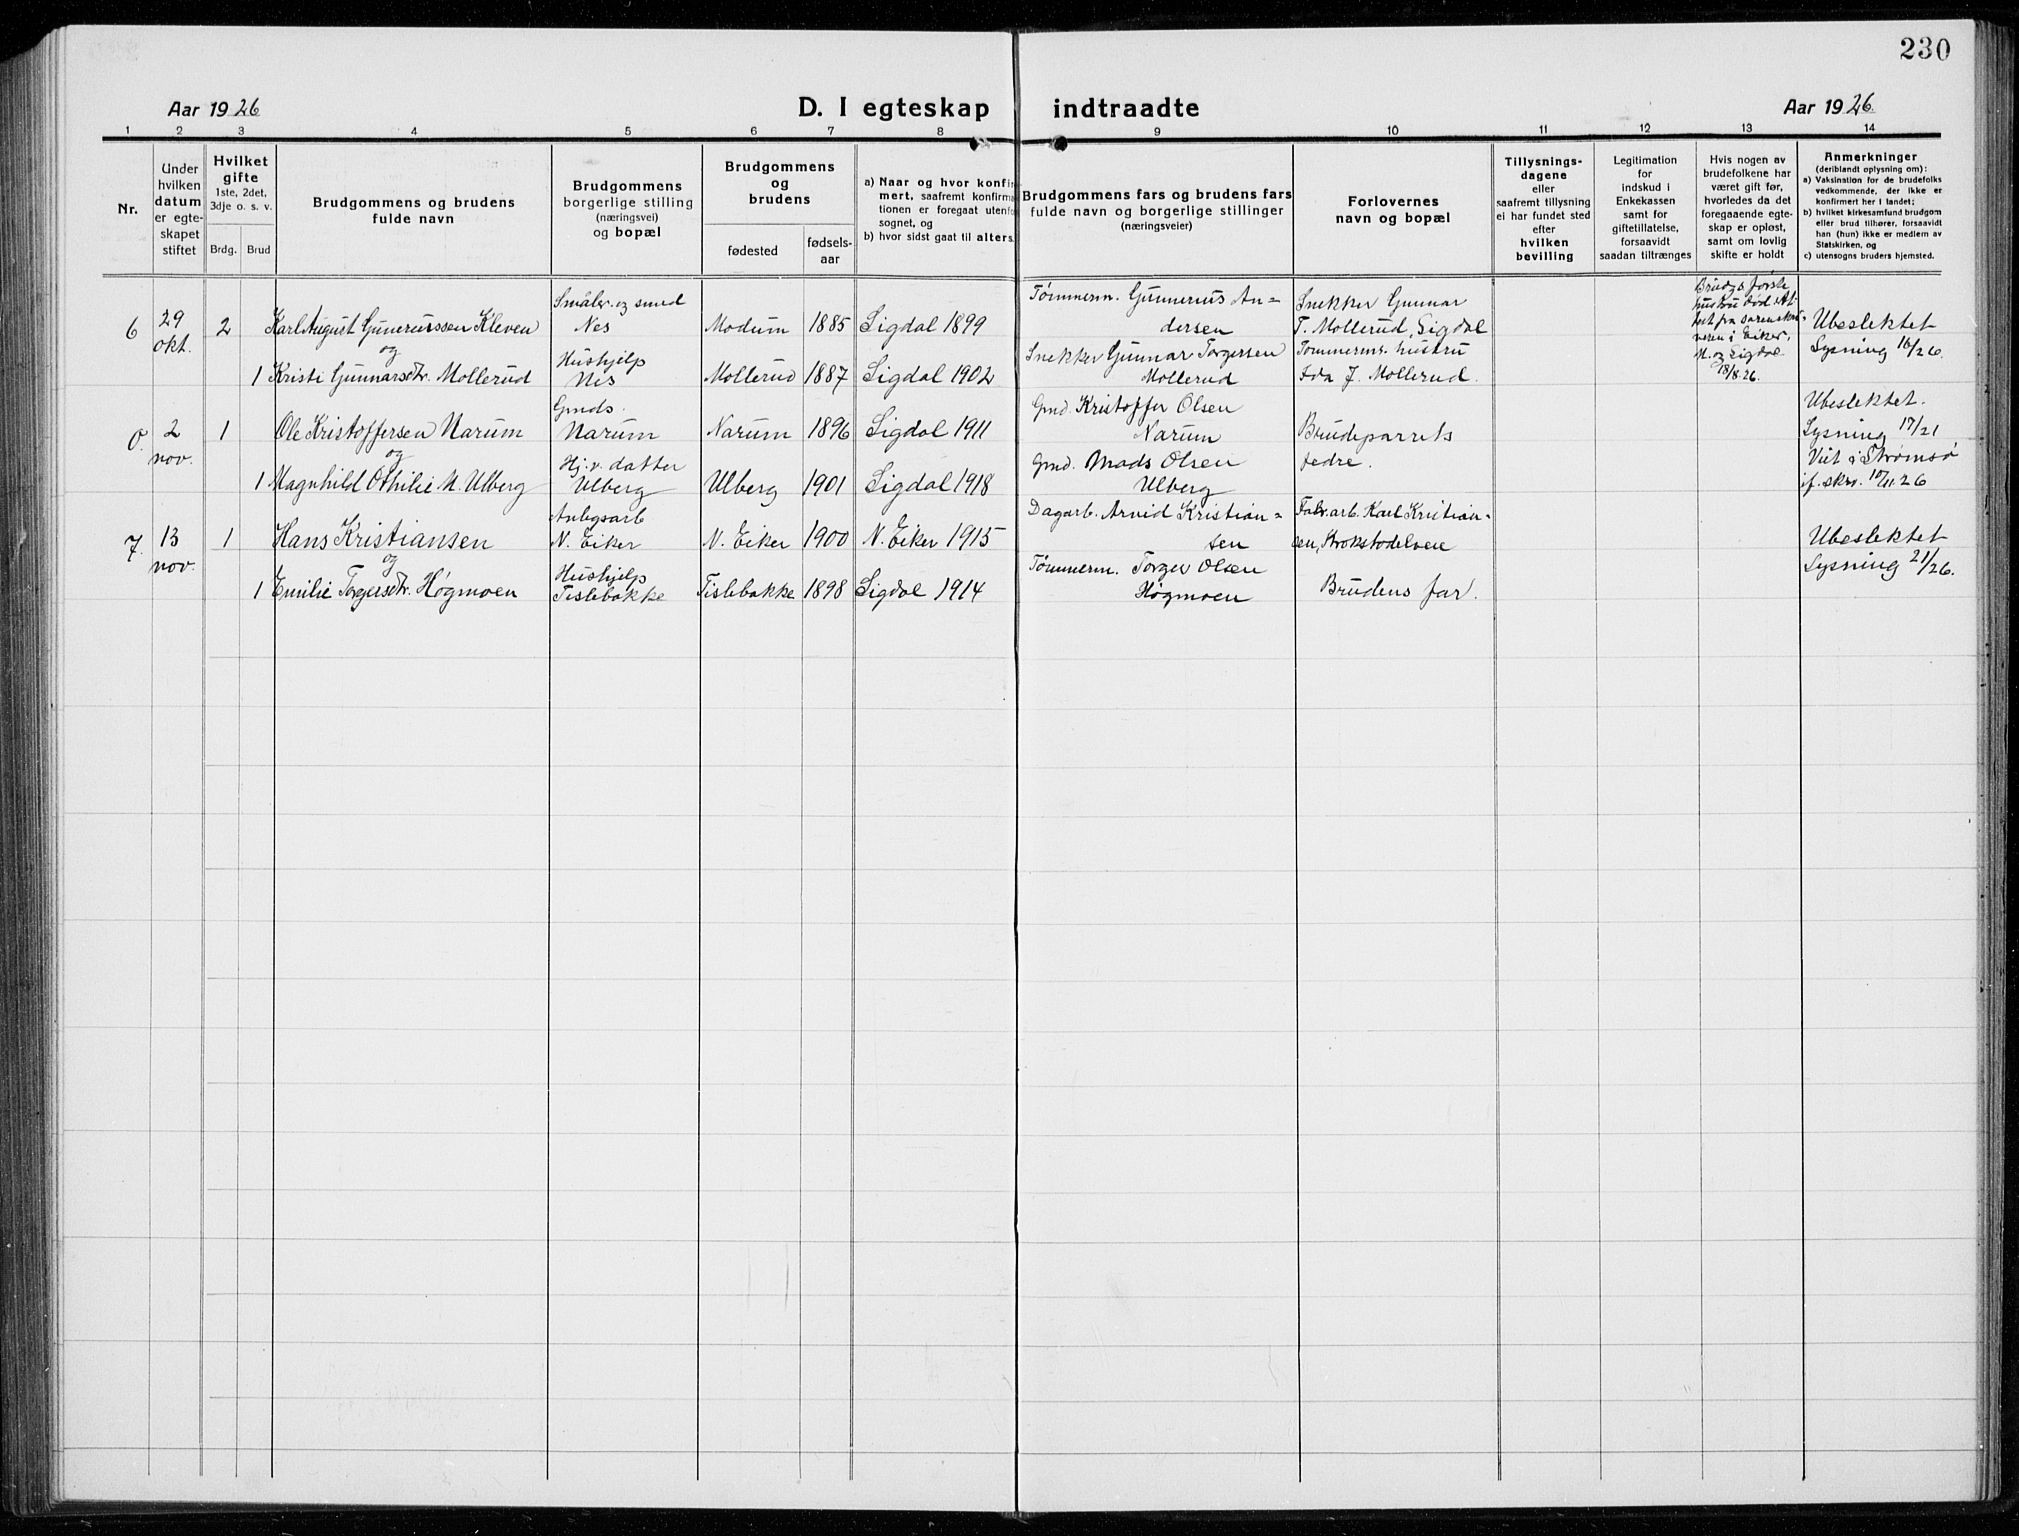 230
Aar 1926
D. I egteskap
indtraadte
Aar 1926.
1 2 3 4 5 6 7 8 9 10 11 12 13 14
Nr.
Under
hvilken
datum
er egte-
skapet
stiftet
Hvilket
gifte
1ste, 2det,
3dje o. s. v.
Brdg. Brud
Brudgommens og brudens
fulde navn
Brudgommens
borgerlige stilling
(næringsvei)
og bopæl
Brudgommens
og
brudens
fødested
fødsels-
aar
a) Naar og hvor konfir
mert, saafremt konfirma
tionen er foregaat utenfo
sognet, og
b) hvor sidst gaat til alters.
Brudgommens fars og brudens fars
fulde navn og borgerlige stillinger
(næringsveier)
Forlovernes
navn og bopæl
Tillysnings-
dagene
eller
saafremt tillysning
ei har fundet sted
efter
hvilken
bevilling
Legitimation
for
indskud i
Enkekassen
samt for
giftetillatelse,
forsaavidt
saadan tiltrænges
Hvis nogen av
brudefolkene har
været gift før,
hvorledes da det
foregaaende egte-
skap er opløst,
samt om lovlig
skifte er holdt
Anmerkninger
(deriblandt oplysning om):
a) Vaksination for de brudefolks
vedkommende, der ikke er
konfirmert her i landet;
b) hvilket kirkesamfund brudgom
eller brud tilhører, forsaavidt
han (hun) ikke er medlem av
Statskirken, og
c) utensogns bruders hjemsted.
6
29
okt.
2
Karl August Gunerussen Kleven
og
1 Kristi Gunnarsdtr. Mollerud
Småbr. og smed
Nes
Hushjelp
Nes
Modum 1885 Sigdal 1899
Mollerud 1887 Sigdal 1902
Tømmerm. Gunnerius An=
dersen
Snekker Gunnar Torgersen
Mollerud
Snekker Gunnar
T. Mollerud, Sigdal
Tømmerm. hustru
Ida J. Mollerud.
Brudg.s første
hustru død. At-
test fra sorenskri-
veren i Eiker,
M. og Sigdal
18/8 26.
Ubeslektet
Lysning 16/26.
0.
2
nov.
1
Ole Kristoffersen Narum
og
1 Magnhild Othilie M. Ulberg
Gmds.
Narum
Hj. v. datter
Ulberg
Narum 1896 Sigdal 1911
Ulberg 1901 Sigdal 1918
Gmd. Kristoffer Olsen
Narum
Gmd. Mads Olsen
Ulberg
Brudeparrets
fedre.
Ubeslektet.
Lysning 17/21
Viet i Strømsø
if. skr. 10/11 26
7.
13
nov.
1
Hans Kristiansen
og
1 Emilie Torgersdtr. Høgmoen
Anlegsarb
N. Eiker
Hushjelp
Tislebakke
N. Eiker 1900 N. Eiker 1915
Tislebakke 1898 Sigdal 1914
Dagarb. Arvid Kristian=
sen
Tømmerm. Torger Olsen
Høgmoen
Fabr. arb. Karl Kristian-
sen,
Brudens far.
Ubeslektet
Lysning 21/26.